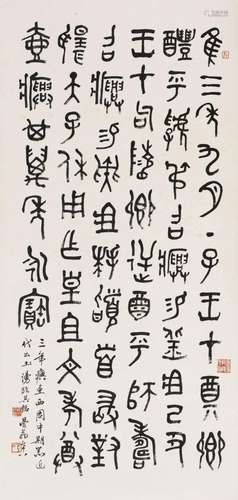 隹三年九月丁子王才奠卿
醴乎虢弔召𤼈易羔俎己丑
王才句陵卿逆酉乎師壽
召𤼈易彘俎拜稽首敢對
揚天子休用乍皇且文考尊
壺𤼈其萬年永寶
三年𤼈壺西周中期器近
代出土